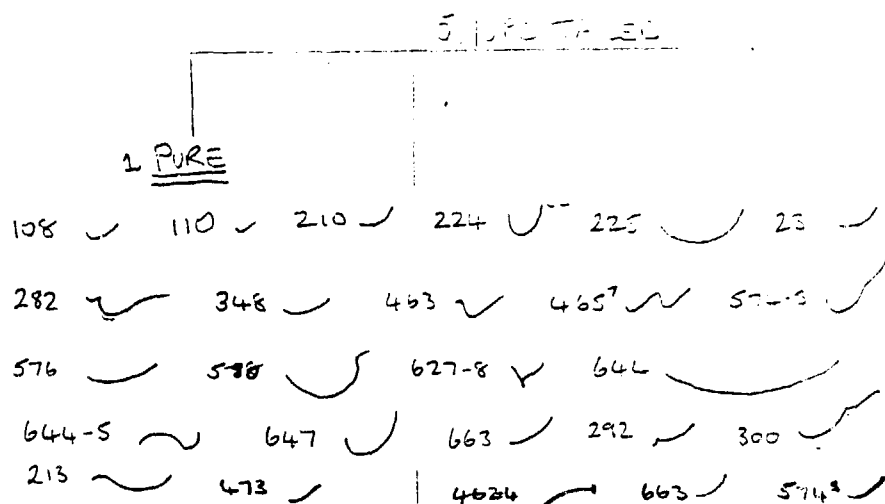 1 PURE
108 110 210 224 225 23
282 348 463 465⁷
576 627-8 644
644-5 647 663 292 300
213 473 4624 663 574⁸